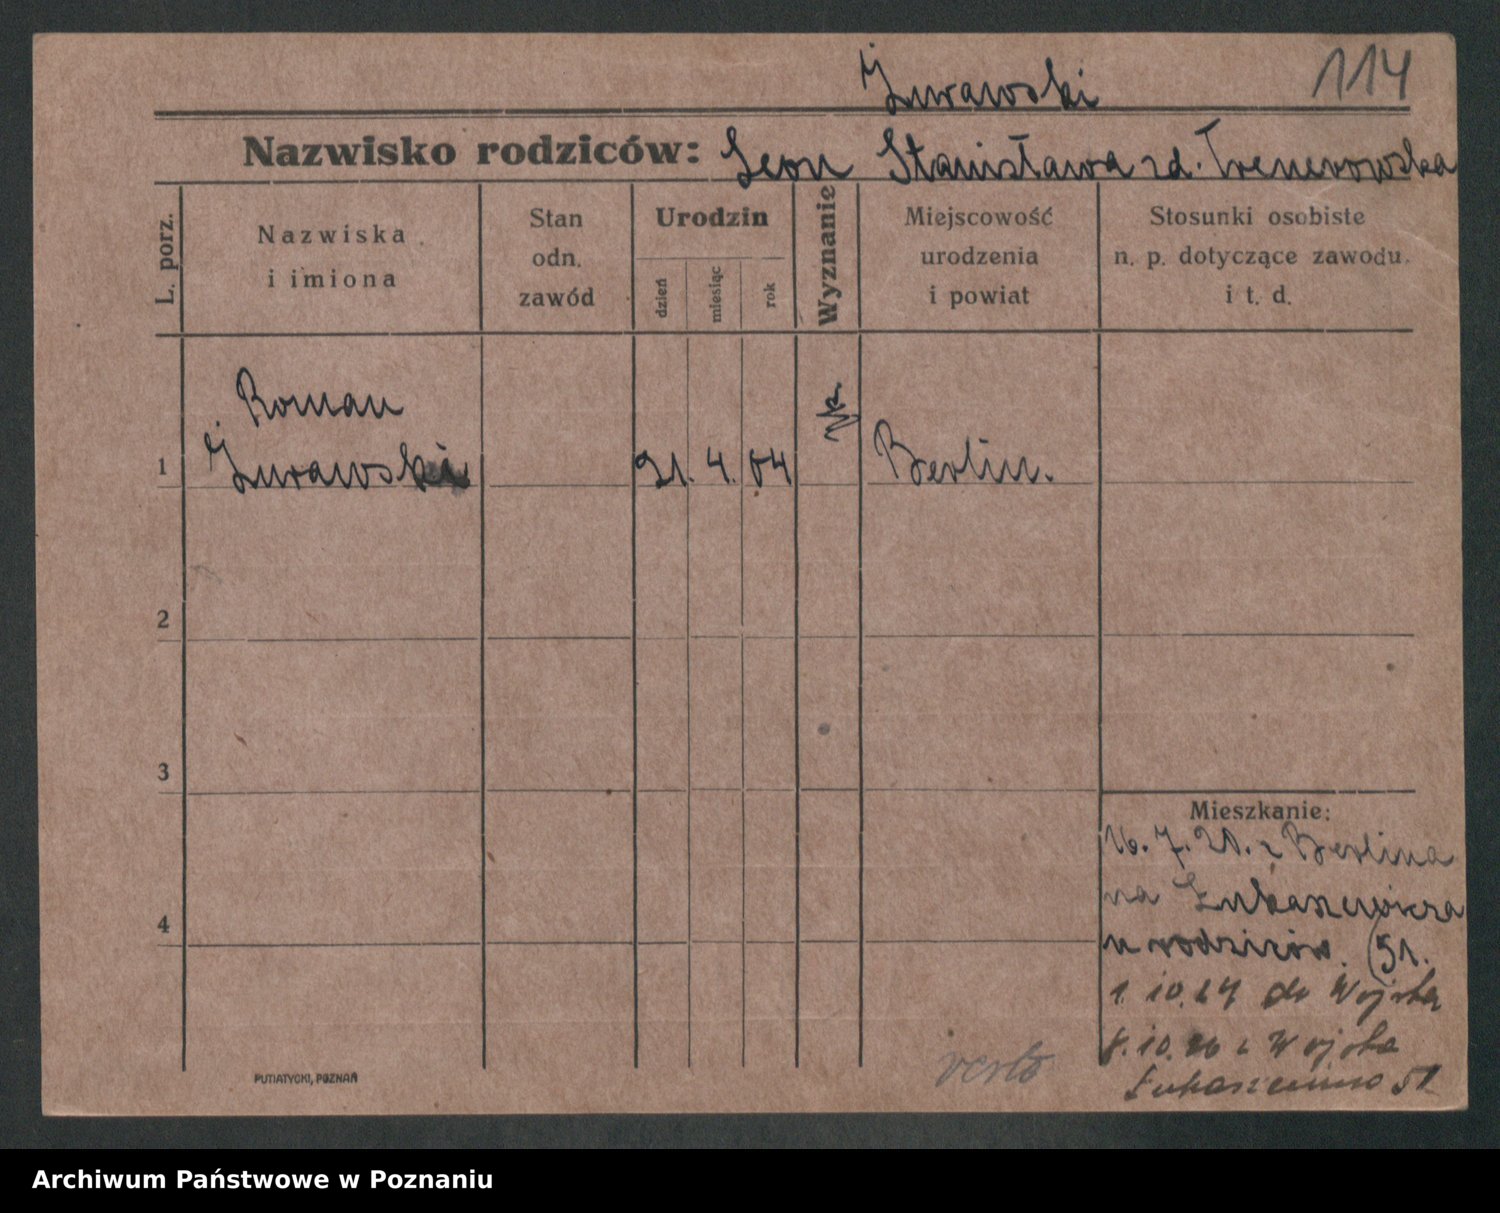 Żurawski
114
Nazwisko rodziców: Leon Stanisława zd. Trenerowska
L. porz.
Nazwiska
i imiona
Stan
odn.
zawód
Urodzin
dzień
miesiąc
rok
Wyznanie
Miejscowość
urodzenia
i powiat
Stosunki osobiste
n. p. dotyczące zawodu.
i t. d.
Roman
1 Żurawski 21. 4. 04 rzk. Berlin.
2
3
4
Mieszkanie:
16. 7. 21. z Berlina
na Łukaszewicza
u rodziców. (51.
1. 10. 24 do Wojska
8. 10. 26 z Wojska
Łukaszewicza 51
verto
PUTIATYCKI, POZNAŃ
Archiwum Państwowe w Poznaniu